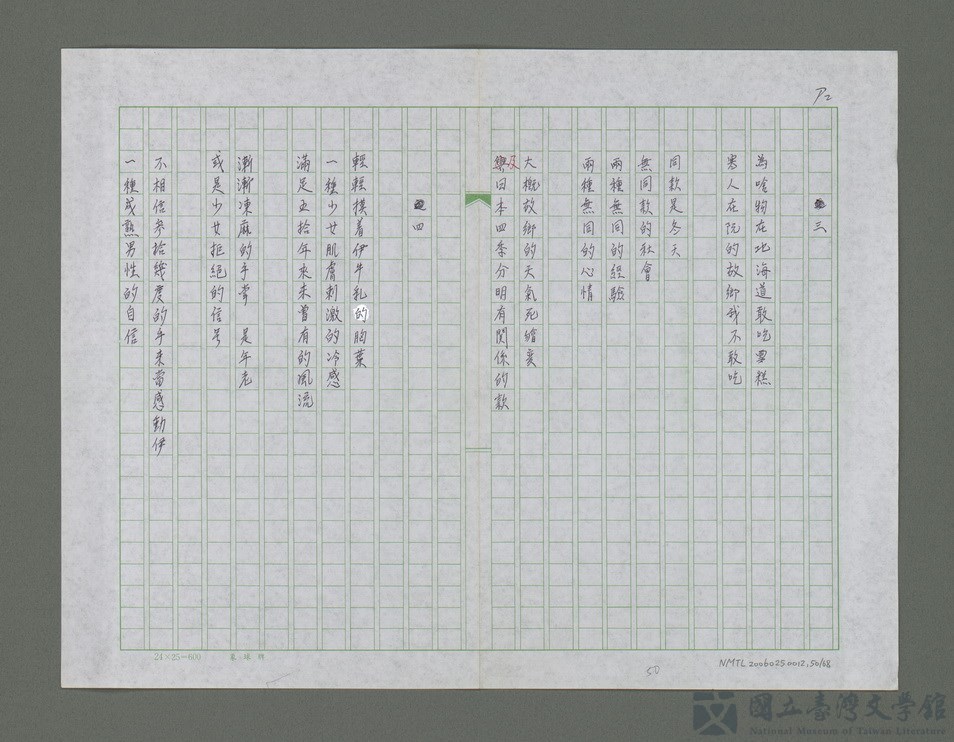 P2
三
為啥物在北海道敢吃雪糕
男人在阮的故鄉我不敢吃
同款是冬天
無同款的社會
兩種無同的經驗
兩種無同的心情
大概故鄉的天氣死縮衰
及日本四季分明有関係的款
四
輕輕摸着伊牛乳的胸葉
一種少女肌膚刺激的冷感
滿足五拾年來未曾有的風流
漸漸凍麻的手掌 是年老
或是少女拒絕的信号
不相信參拾幾度的手未當感動伊
一種成熟男性的自信
24×25=600
50
NMTL20060250012,50/68
國立臺灣文學館
National Museum of Taiwan Literature